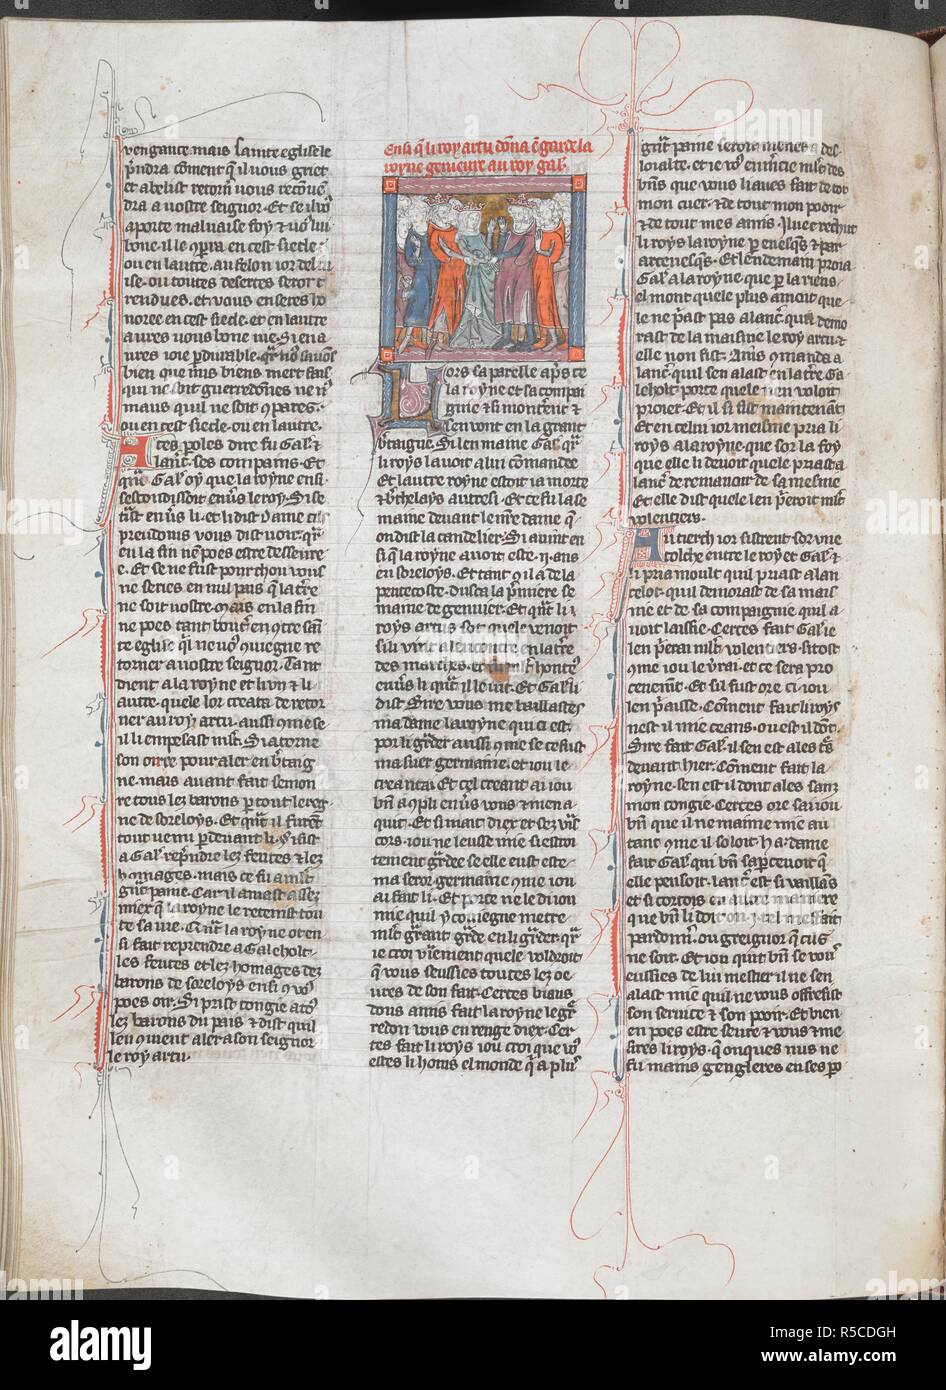 vengance. mais sainte eglise le
p̃ndra cõment q̃ il vous griet
et abelist retorñ vous recõuẽ
dra a uostre seignor. Et se il wͦ
aporte maluaise foy
bone. il le
ou en lautre. au felon ior del iu
ise. ou toutes desertes seront
rendues. et vous en seres ho
noree en cest siecle. et en lautre
aures uous bone uie. Si en a
ures ioie p̃durable. q̃r nͦ sauõs
bien que nus biens mert fais
qui ne soit guerredones ne nͥ
maus quil ne soit ɔpares.
ou en cest siecle. ou en lautre.
A ces poles dire fu Gal. ⁊
lanc̃. ses compains. Et
q̃nt Gal. oy que la royne ensi
sescondissoit enũs le roy. Si se
trͣst enũs li. et li dist dame
preudons vous dist uoir. q̃r
en la fin nẽ poes estre desseure
e. Et se ne fust pour chou vous
ne series en nul pais q̃ la tr̃re
ne soit uostre. mais en la fin
ne poes tant
te eglise q̃ il ne uͦ ɔuiegne re
torner a uostre seignor. Tant
dient a la royne et li vn ⁊ li
autre. quele lor creata de retor
ner au roy artu. aussi ɔme se
il li empesast ml̃t. Si atorne
son oirre pour aler en br̃taig
ne. mais auant fait semon
re tous lez barons p tout le reg
ne de soreloys. Et q̃nt il furẽt
tout uenu p deuant li. Si fist
a Gal. rep̃ndre lez feutes ⁊ lez
homages. mais ce fu a ml̃t
g̃nt paine. Car il amast assez
miex q̃ la royne le retenist tou
te sa uie. Q̃nt la royne ot en
si fait reprendre a Galeholt.
les feutes et lez homages dez
barons de soreloys ensi ɔ wͦ
poes oir. Si prist congie a tͦs
lez barons du pais ⁊ dist quil
len ɔuient aler a son seignor
le roy artu.
Ensi q̃ li roy artu dona ẽ garde la
royne genieure au roy gal.
Lors saparelle aps̃ ce
la royne et sa compai
gnie ⁊ si monterẽt ⁊
sen vont en la grant
br̃taigne. Si len maine Gal. q̃r
li roys lauoit a lui cõmandee
Et lautre royne estoit ia morte
⁊ br̃thelays autresi. Et ce fu la se
maine deuant le nr̃e dame q̃
on dist la candelier. Si auint en
si q̃ la royne auoit este .ij. ans
en soreloys. Et tant ɔ il a de la
pentecoste. dusca la p̃miere se
maine de genuier. Et q̃nt li
roys artus sot quele venoit
si li vint a lencontre en la tr̃re
des
enũs li q̃nt il le uit. Et Gal. li
dist Sire vous me baillastes
ma dame la royne qui ci est
por li gr̃der aussi ɔme se ce fust
ma suer germaine. et iou le
creantai. Et cel creant ai iou
bñ aɔpli enũs vous ⁊ men a
quit. Et si mait diex et sez
cors. iou ne leusse mie si estroi
tement gr̃dee se elle eust este
ma seror germaine ɔme iou
ai fait li. Et porce ne le di iou
mie quil y couiegne metre
ml̃t grant gr̃de en li gr̃der. q̃r
ie croi vraiement quele voldroit
q̃ vous seussies toutes lez oe
ures de son fait. Certes biaus
dous amis fait la royne le gr̃
redon vous en renge diex. Cer
tes fait li roys iou croi que vͦ
estes li homs el monde q̃ a pluͥ
g̃nt paine
loialte. et ie wͦ enm̃cie ml̃t des
bñs que vous li aues fait de tot
mon cuer. ⁊ de tout mon pooir
⁊ de tout mes amis. Illuec rechut
li roys la royne p euesq̃s ⁊ par
arceuesq̃s. Et lendemain proia
Gal. a la royne. que p la riens
el mont quele plus amoit que
le ne p̃ast pas a lanc̃. qua demo
rast de la maisme le roy artu. ⁊
elle non fist. Anis ɔmanda a
lanc̃. quil sen alast en la tr̃re Ga
leholt. porce quele nen voloit
proier. Et il si fist maintenant
Et en celui ior meisme pria li
roys a la royne. que sor la foy
que elle li deuoit quele priast a
lanc̃ de remanoir de sa mesnie
Et elle dist quele len p̃eroit ml̃t
volentiers.
Au tierch ior sistrent sor vne
colche entre le roy et Gal. ⁊
li pria moult quil priast a lan
celot. quil demorast de sa mais
nie et de sa compaignie quil a
uoit laissie. Certes fait Gal. ie
len p̃erai ml̃t volentiers. si tost
ɔme iou le verai. et ce sera pro
cenemẽt. Et sil fust ore ci. iou
len p̃aisse. Cõment fait li roys
nest il mie ceans. ou est il dõt.
Sire fait Gal. il sen est ales trͤs
deuant hier. Cõment fait la
royne. sen est il dont ales sanz
mon congie. Certes ore sai iou
bñ que il ne maime mie au
tant ɔme il soloit. ha dame
fait Gal. qui bñ saprchevoit q̃
elle pensoit. lanc̃. est si vaillans
et si cortois en autre maniere
que bñ li doit on .j. tel meffait
pardonr̃. ou greignor q̃ cius
ne soit. Et iou quit bñ se vou
eussies de lui mestier il ne sen
alast mie quil ne vous offresist
son seruice ⁊ son pooir. Et bien
en poes estre seure ⁊ vous ⁊ me
sires li roys. q̃ onques nus ne
fu mains genglieres en ses po
alamy
Image ID: R5CCDGH
www.alamy.com